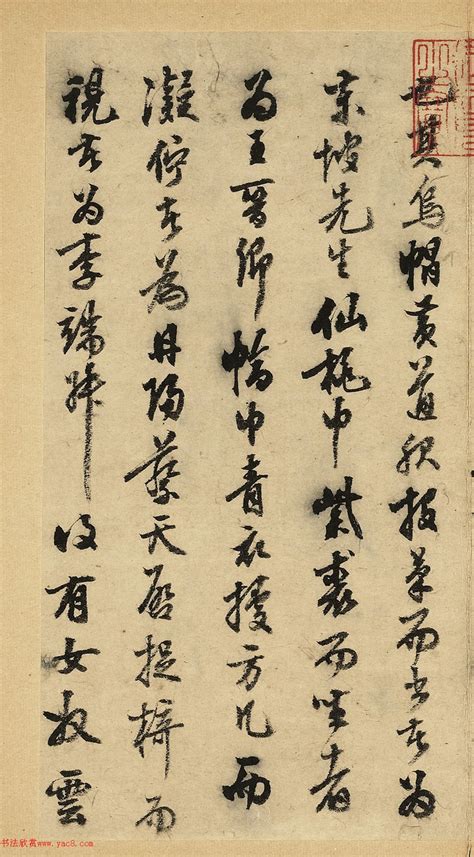 也其烏帽黃道服捉筆而書者為
東坡先生仙桃巾紫裘而坐者
為王晉卿幅巾青衣據方几而
凝佇者為丹陽蔡天啟捉椅而
視者為李端叔後有女奴雲
书法欣赏www.yac8.com